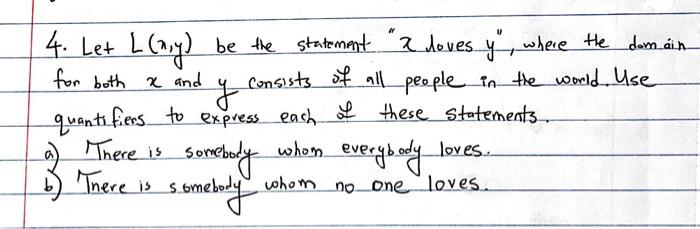 4. Let L(x,y) be the statement "x loves y", where the domain
for both x and y consists of all people in the world. Use
quantifiers to express each of these statements.
a) There is somebody whom everybody loves.
b) There is somebody whom no one loves.